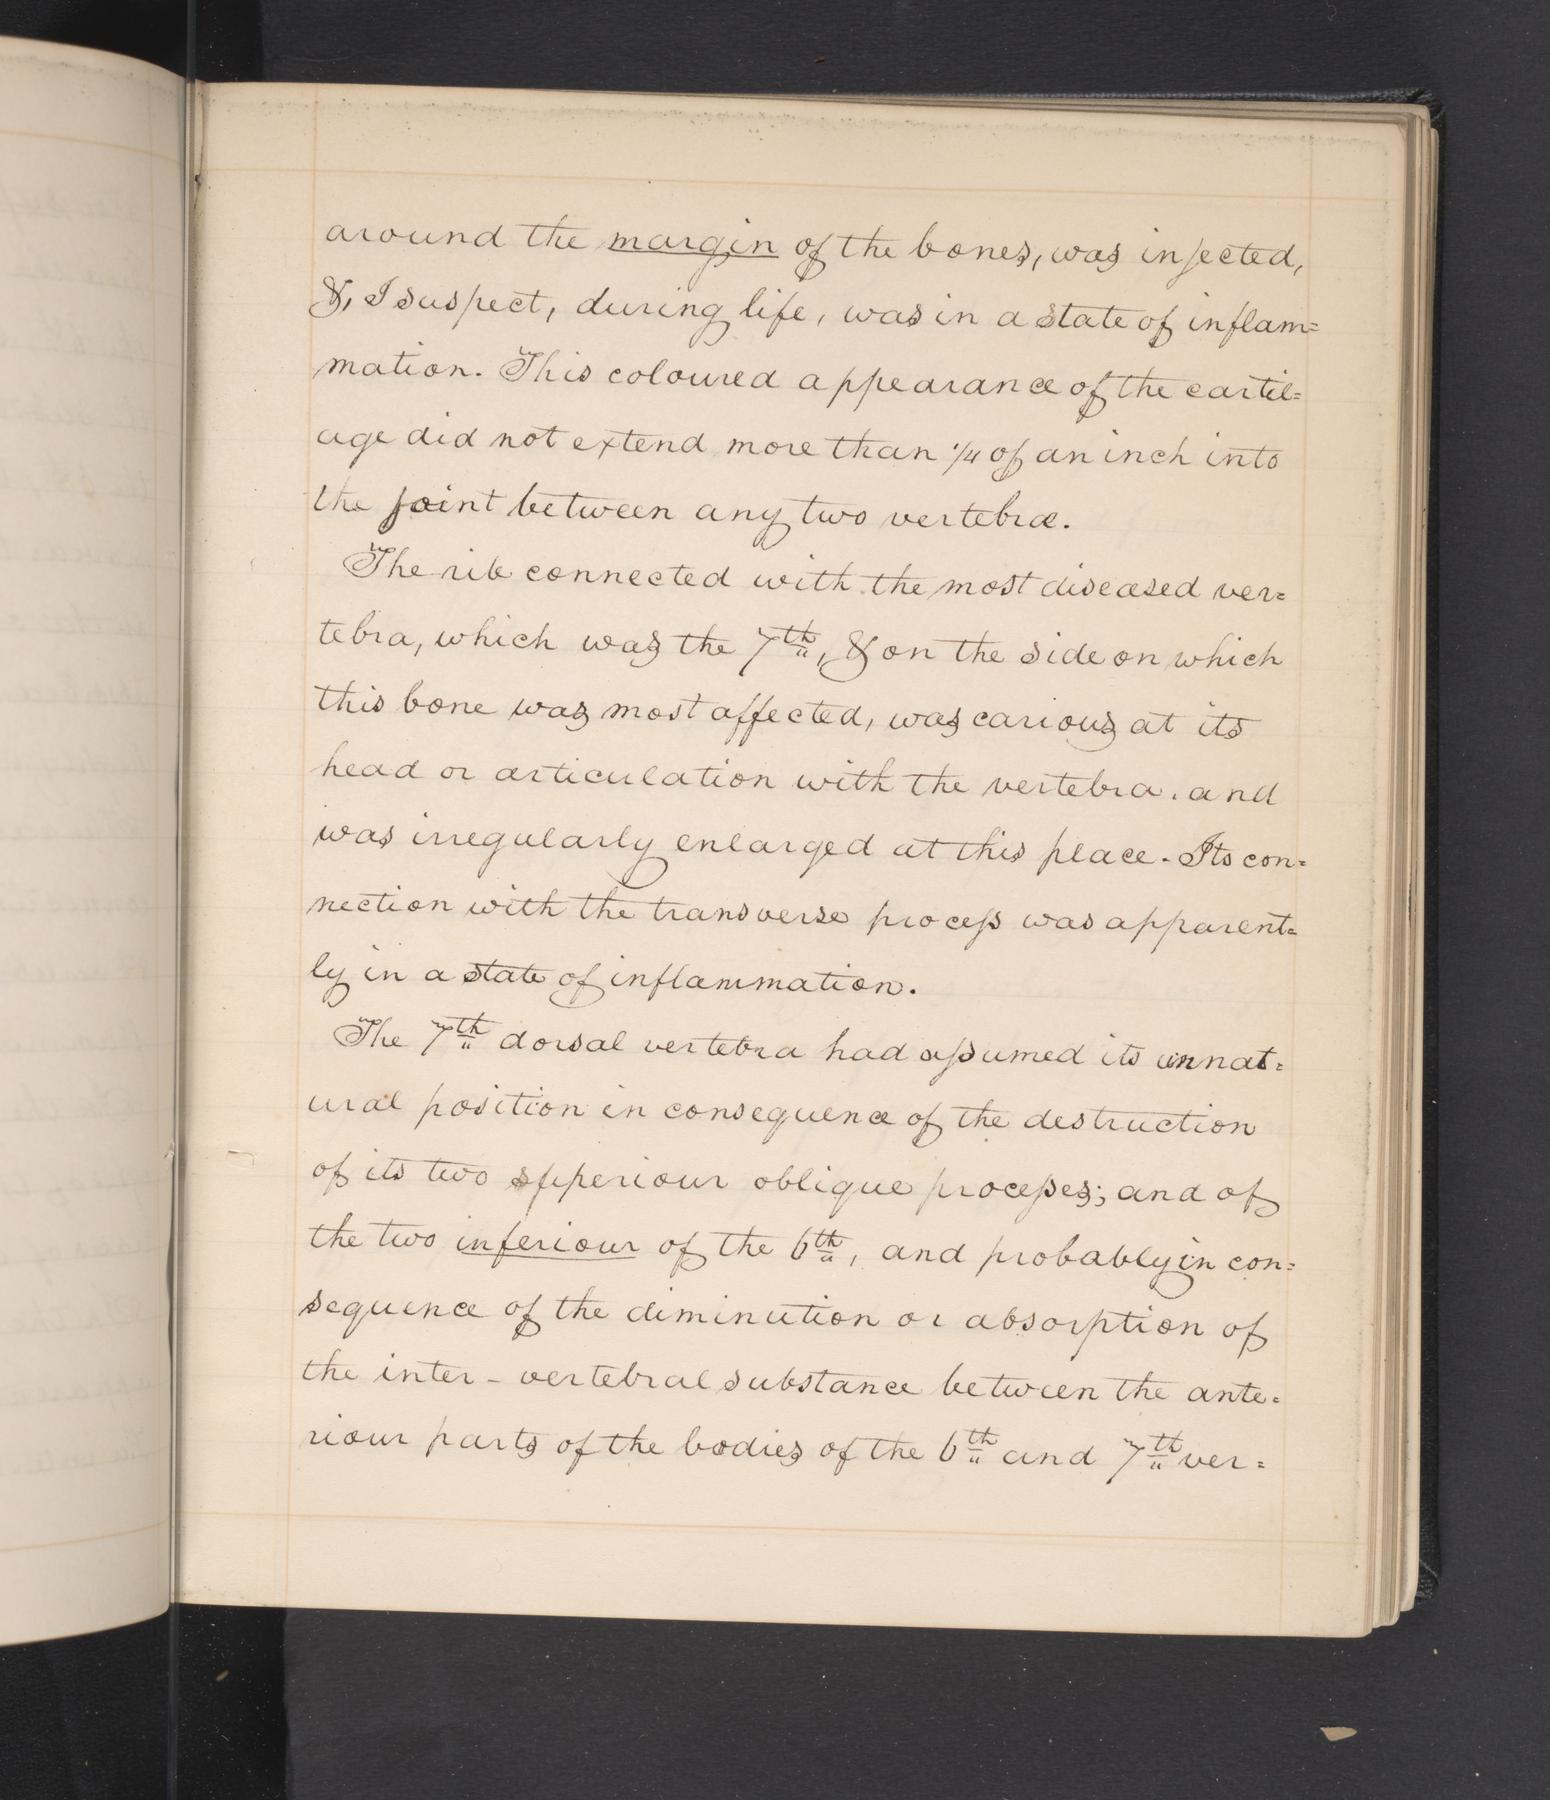 around the margin of the bones, was injected,
&, I suspect, during life, was in a state of inflam=
mation. This coloured appearance of the cartil=
age did not extend more than 1/4 of an inch into
the joint between any two vertebræ.
The rib connected with the most diseased ver=
tebra, which was the 7th, & on the side on which
this bone was most affected, was carious at its
head or articulation with the vertebra, and
was irregularly enlarged at this place. Its con=
nection with the transverse process was apparent=
ly in a state of inflammation.
The 7th dorsal vertebra had assumed its unnat=
ural position in consequence of the destruction
of its two superiour oblique processes; and of
the two inferiour of the 6th, and probably in con=
sequence of the diminution or absorption of
the inter-vertebral substance between the ante=
riour parts of the bodies of the 6th and 7th ver=